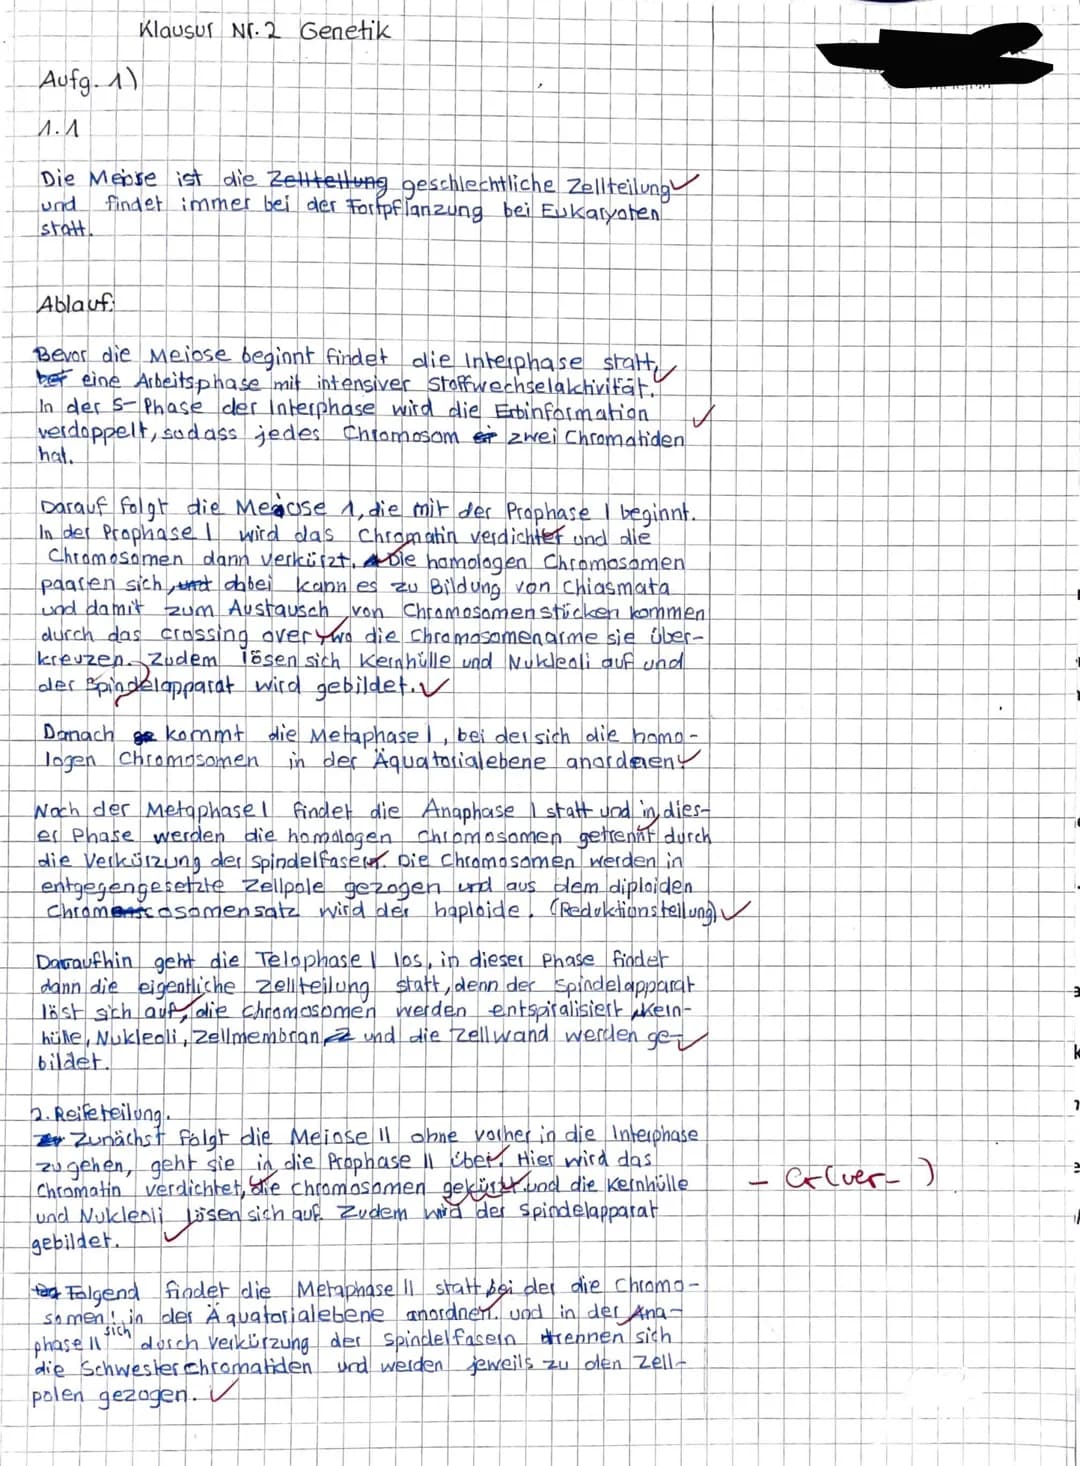 Klausur Nr. 2 Genetik
Aufg. 1)
1.1
Die Meiose ist die Zellteilung geschlechtliche Zellteilung
und findet immer bei der Fortpflanzung bei Eukaryoten
statt.
Ablauf:
Bevor die Meiose beginnt findet die Interphase statt,
eine Arbeitsphase mit intensiver Stoffwechselaktivität.
In der S-Phase der Interphase wird die Erbinformation
verdoppelt, sodass jedes Chromosom zwei Chromatiden
hat.
Darauf folgt die Meiose 1, die mit der Prophase I beginnt.
In der Prophase I wird das Chromatin verdichtet und die
Chromosomen dann verkürzt. Die homologen Chromosomen
paaren sich, und dabei kann es zu Bildung von Chiasmata
und damit zum Austausch von Chromosomenstücken kommen
durch das crossing over, wo die Chromosomenarme sie über-
kreuzen. Zudem lösen sich Kernhülle und Nukleoli auf und
der Spindelapparat wird gebildet.
Danach kommt die Metaphase I, bei der sich die homo-
logen Chromosomen in der Äquatorialebene anordnen.
Nach der Metaphase I findet die Anaphase I statt und in dies-
er Phase werden die homologen Chromosomen getrennt durch
die Verkürzung der Spindelfasern. Die Chromosomen werden in
entgegengesetzte Zellpole gezogen und aus dem diploiden
Chromosomensatz wird der haploide. (Reduktionsteilung)
Daraufhin geht die Telophase I los, in dieser Phase findet
dann die eigentliche Zellteilung statt, denn der Spindelapparat
löst sich auf, die Chromosomen werden entspiralisiert, Kern-
hülle, Nukleoli, Zellmembran und die Zellwand werden ge-
bildet.
2. Reifeteilung.
Zunächst folgt die Meiose II ohne vorher in die Interphase
zu gehen, geht sie in die Prophase II über. Hier wird das
Chromatin verdichtet, die Chromosomen gekürzt und die Kernhülle
- Gr (ver- )
und Nukleoli lösen sich auf. Zudem wird der Spindelapparat
gebildet.
Folgend findet die Metaphase II statt bei der die Chromo-
somen sich in der Äquatorialebene anordnen. und in der Ana-
phase II durch Verkürzung der Spindelfasern trennen sich
die Schwesterchromatiden und werden jeweils zu den Zell-
polen gezogen.